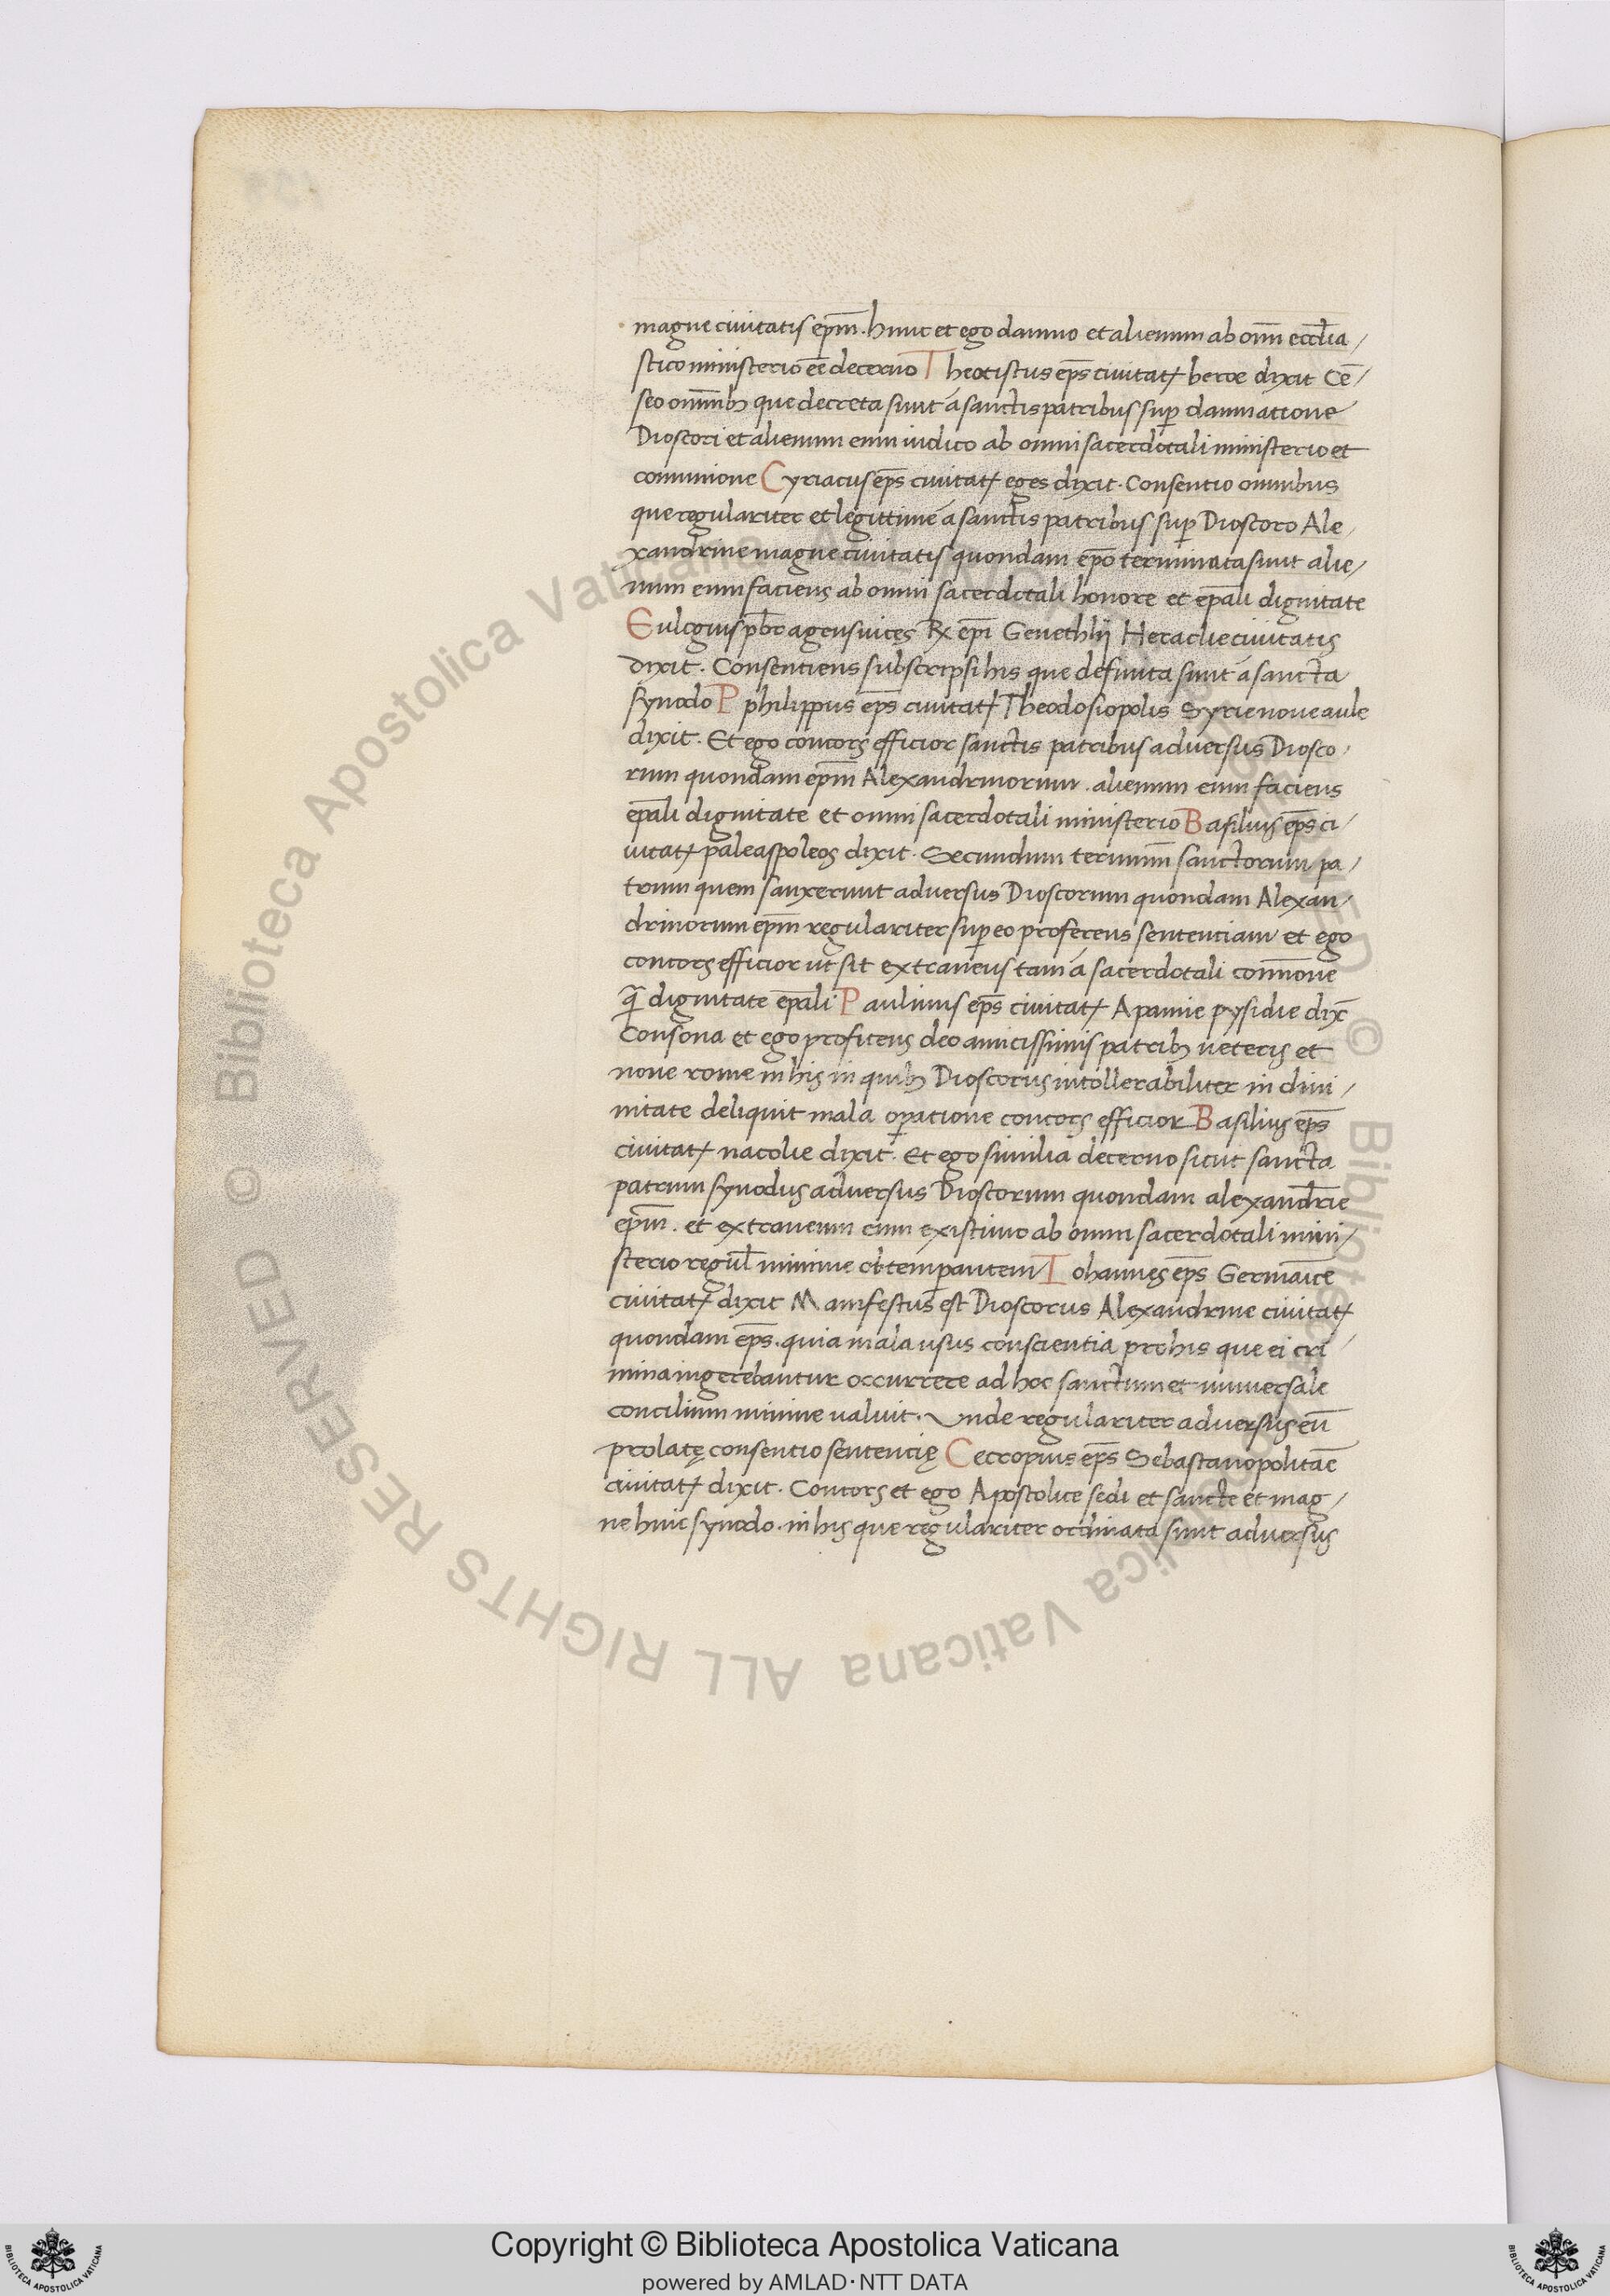 magne ciuitatis ep̄m. hunc et ego damno et alienum ab om̄i eccl̄ia/
stico ministerio eē decerno Theotistus ep̄s ciuitatꝭ beroe dixit Cē/
seo omnībꝫ que decreta sunt á sanctis patribus suꝑ damnatione
Dioscori et alienum eum iudico ab omni sacerdotali ministerio et
comunione Cyriacus ep̄s ciuitatꝭ eges dixit. Consentio omnibus
que regulariter et legittime á sanctis patribus suꝑ Dioscoro Ale/
xandrine magne ciuitatis quondam ep̄o terminata sunt alie/
num eum faciens ab omni sacerdotali honore et ep̄ali dignitate
Eulogius pb̄r agens uices Rx ep̄i Genethlij Heraclie ciuitatis
dixit. Consentiens subscripsi his que definita sunt á sancta
synodo P philippus ep̄s ciuitatꝭ Theodosiopolis Syrie noue aule
dixit. Et ego concors efficior sanctis patribus aduersus Diosco/
rum quondam ep̄m Alexandrinorum. alienum eum faciens
ep̄ali dignitate et omni sacerdotali ministerio Basilius ep̄s ci/
uitatꝭ paleaspoleos dixit. Secundum terminū sanctorum pa/
trum quem sanxerunt aduersus Dioscorum quondam Alexan/
drinorum ep̄m regulariter suꝑ eo proferens sentenciam et ego
concors efficior ut sit extraneus tam á sacerdotali comm̄one
q̄ dignitate ep̄ali Paulinus ep̄s ciuitatꝭ Apamie pysidie dix̄
Consona et ego profitens deo amicissimis patribꝫ ueteris et
noue rome in his in quibꝫ Dioscorus intollerabiliter in diui/
nitate deliquit mala oꝑatione concors efficior Basilius ep̄s
ciuitatꝭ nacolie dixit. Et ego similia decerno sicut sancta
patrum synodus aduersus Dioscorum quondam alexandrie
ep̄m. et extraneum eum existimo ab omni sacerdotali mini/
sterio regul̄ minime obtemꝑantem Iohannes ep̄s Germāice
ciuitatꝭ dixit Manifestus est Dioscorus Alexandrine ciuitatꝭ
quondam ep̄s. quia mala usus conscientia pro his que ei cri/
mina ingerebantur occurrere ad hoc sanctum et uniuersale
concilium minime ualuit. Unde regulariter aduersus eū
prolatę consentio sentencię Cecropius ep̄s Sebastanopolitāe
ciuitatꝭ dixit. Concors et ego Apostolice sedi et sancte et mag/
ne huic synodo. in his que regulariter ordinata sunt aduersus
© Biblioteca Apostolica Vaticana ALL RIGHTS RESERVED © Biblioteca Apostolica Vaticana ALL RIGHTS RESERVED
Copyright © Biblioteca Apostolica Vaticana
powered by AMLAD·NTT DATA
BIBLIOTECA APOSTOLICA VATICANA
BIBLIOTECA APOSTOLICA VATICANA